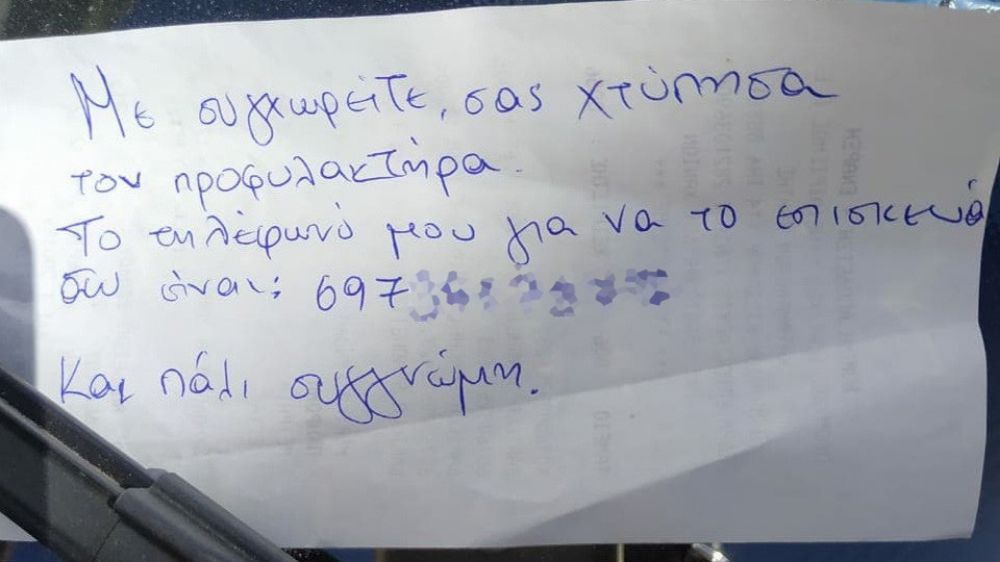 Με συγχωρείτε, σας χτύπησα
τον προφυλακτήρα.
Το τηλέφωνό μου για να το επισκευά
σω είναι: 697
Και πάλι συγγνώμη.